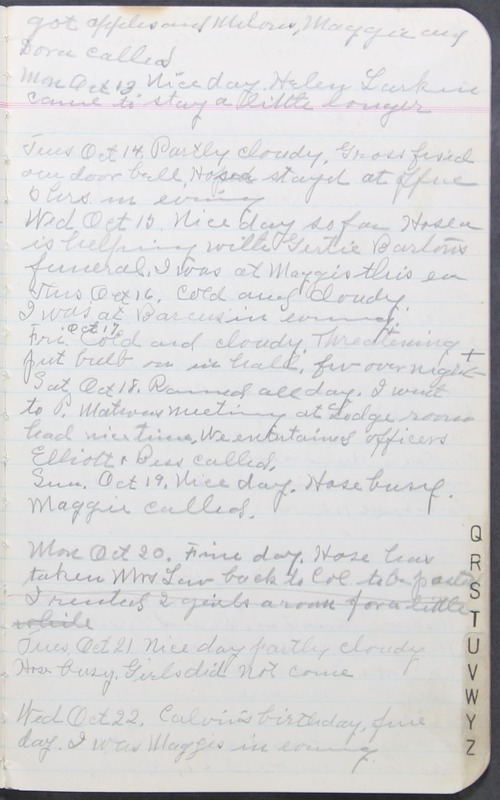 got apples and Melons, Maggie and
Dora called
Mon Oct 13. Nice day. Helen Larkin
came to stay a little longer
Tues Oct 14. Partly cloudy, Gross fixed
our door bell, Hosea stayd at ffue
Hrs. in evening
Wed Oct 15. Nice day so far Hosea
is helping with Gertie Bartons
funeral. I was at Maggis this ea
Tus Oct 16. Cold and Cloudy.
I was at Barcus in evening
Fri. Oct 17. Cold and cloudy, Threatening +
put bulb on in hall, for over night
Sat Oct 18. Rained all day. I went
to P. Matrons meeting at Lodge room
had nice time. We entertained officers
Elliott & Bess called.
Sun. Oct 19. Nice day. Hose busy.
Maggie called.
Mon Oct 20. Fine day. Hose has
taken Mrs Law back to Col. to be
I rented 2 girls a room for a little
while
Tues, Oct 21 Nice day partly cloudy
Hose busy. Girls did not come
Wed Oct 22. Calvin's birthday, fine
day. I was Maggis in evening.
Q
R
S
T
U
V
W
Y
Z